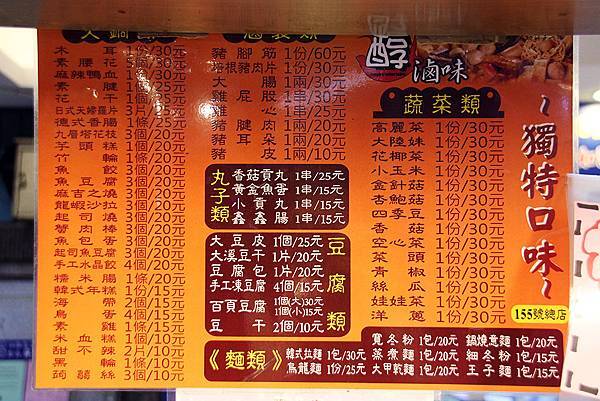 火鍋類
木耳 1份/30元
素腰花 5個/30元
麻辣鴨血 1份/30元
日式天婦羅片 3片/20元
德式香腸 1條/25元
九層塔花枝 3個/20元
芋頭糕 1條/20元
竹輪 1條/20元
魚餃 3個/20元
魚豆腐 3個/20元
麻吉之燒 3個/20元
龍蝦沙拉 3個/20元
起司燒 3個/20元
蟹肉棒 3個/20元
魚包蛋 3個/20元
起司魚豆腐 3個/20元
手工水晶餃 4個/20元
糯米腸 1條/20元
韓式年糕 1份/15元
海帶 2個/15元
鳥蛋 4個/15元
素雞 1條/15元
米血糕 1個/10元
甜不辣 2片/10元
黑輪 1條/10元
蒟蒻絲 3個/10元
滷製類
豬腳筋 1份/60元
培根豬肉片 1份/30元
大腸 1兩/30元
雞屁股 1串/30元
雞心 1串/25元
豬腱肉 1兩/20元
豬耳朵 1兩/20元
豬皮 1兩/10元
丸子類
香菇貢丸 1串/25元
黃金魚蛋 1串/15元
小貢丸 1串/15元
鑫鑫腸 1串/15元
豆腐類
大豆皮 1個/25元
大溪豆干 1片/20元
豆腐包 1片/20元
手工凍豆腐 4個/15元
百頁豆腐 1個(大)30元
1個(小)15元
豆干 2個/10元
醇滷味
蔬菜類
高麗菜 1份/30元
大陸妹 1份/30元
花椰菜 1份/30元
小玉米 1份/30元
金針菇 1份/30元
杏鮑菇 1份/30元
四季豆 1份/30元
香菇 1份/30元
空心菜 1份/30元
菜頭 1份/30元
青椒 1份/30元
絲瓜 1份/30元
娃娃菜 1份/30元
洋蔥 1份/30元
~獨特口味~
155號總店
《麵類》
韓式拉麵 1包/30元
烏龍麵 1份/25元
寬冬粉 1包/20元
蒸煮麵 1包/20元
大甲乾麵 1包/20元
鍋燒意麵 1包/20元
細冬粉 1包/15元
王子麵 1包/15元